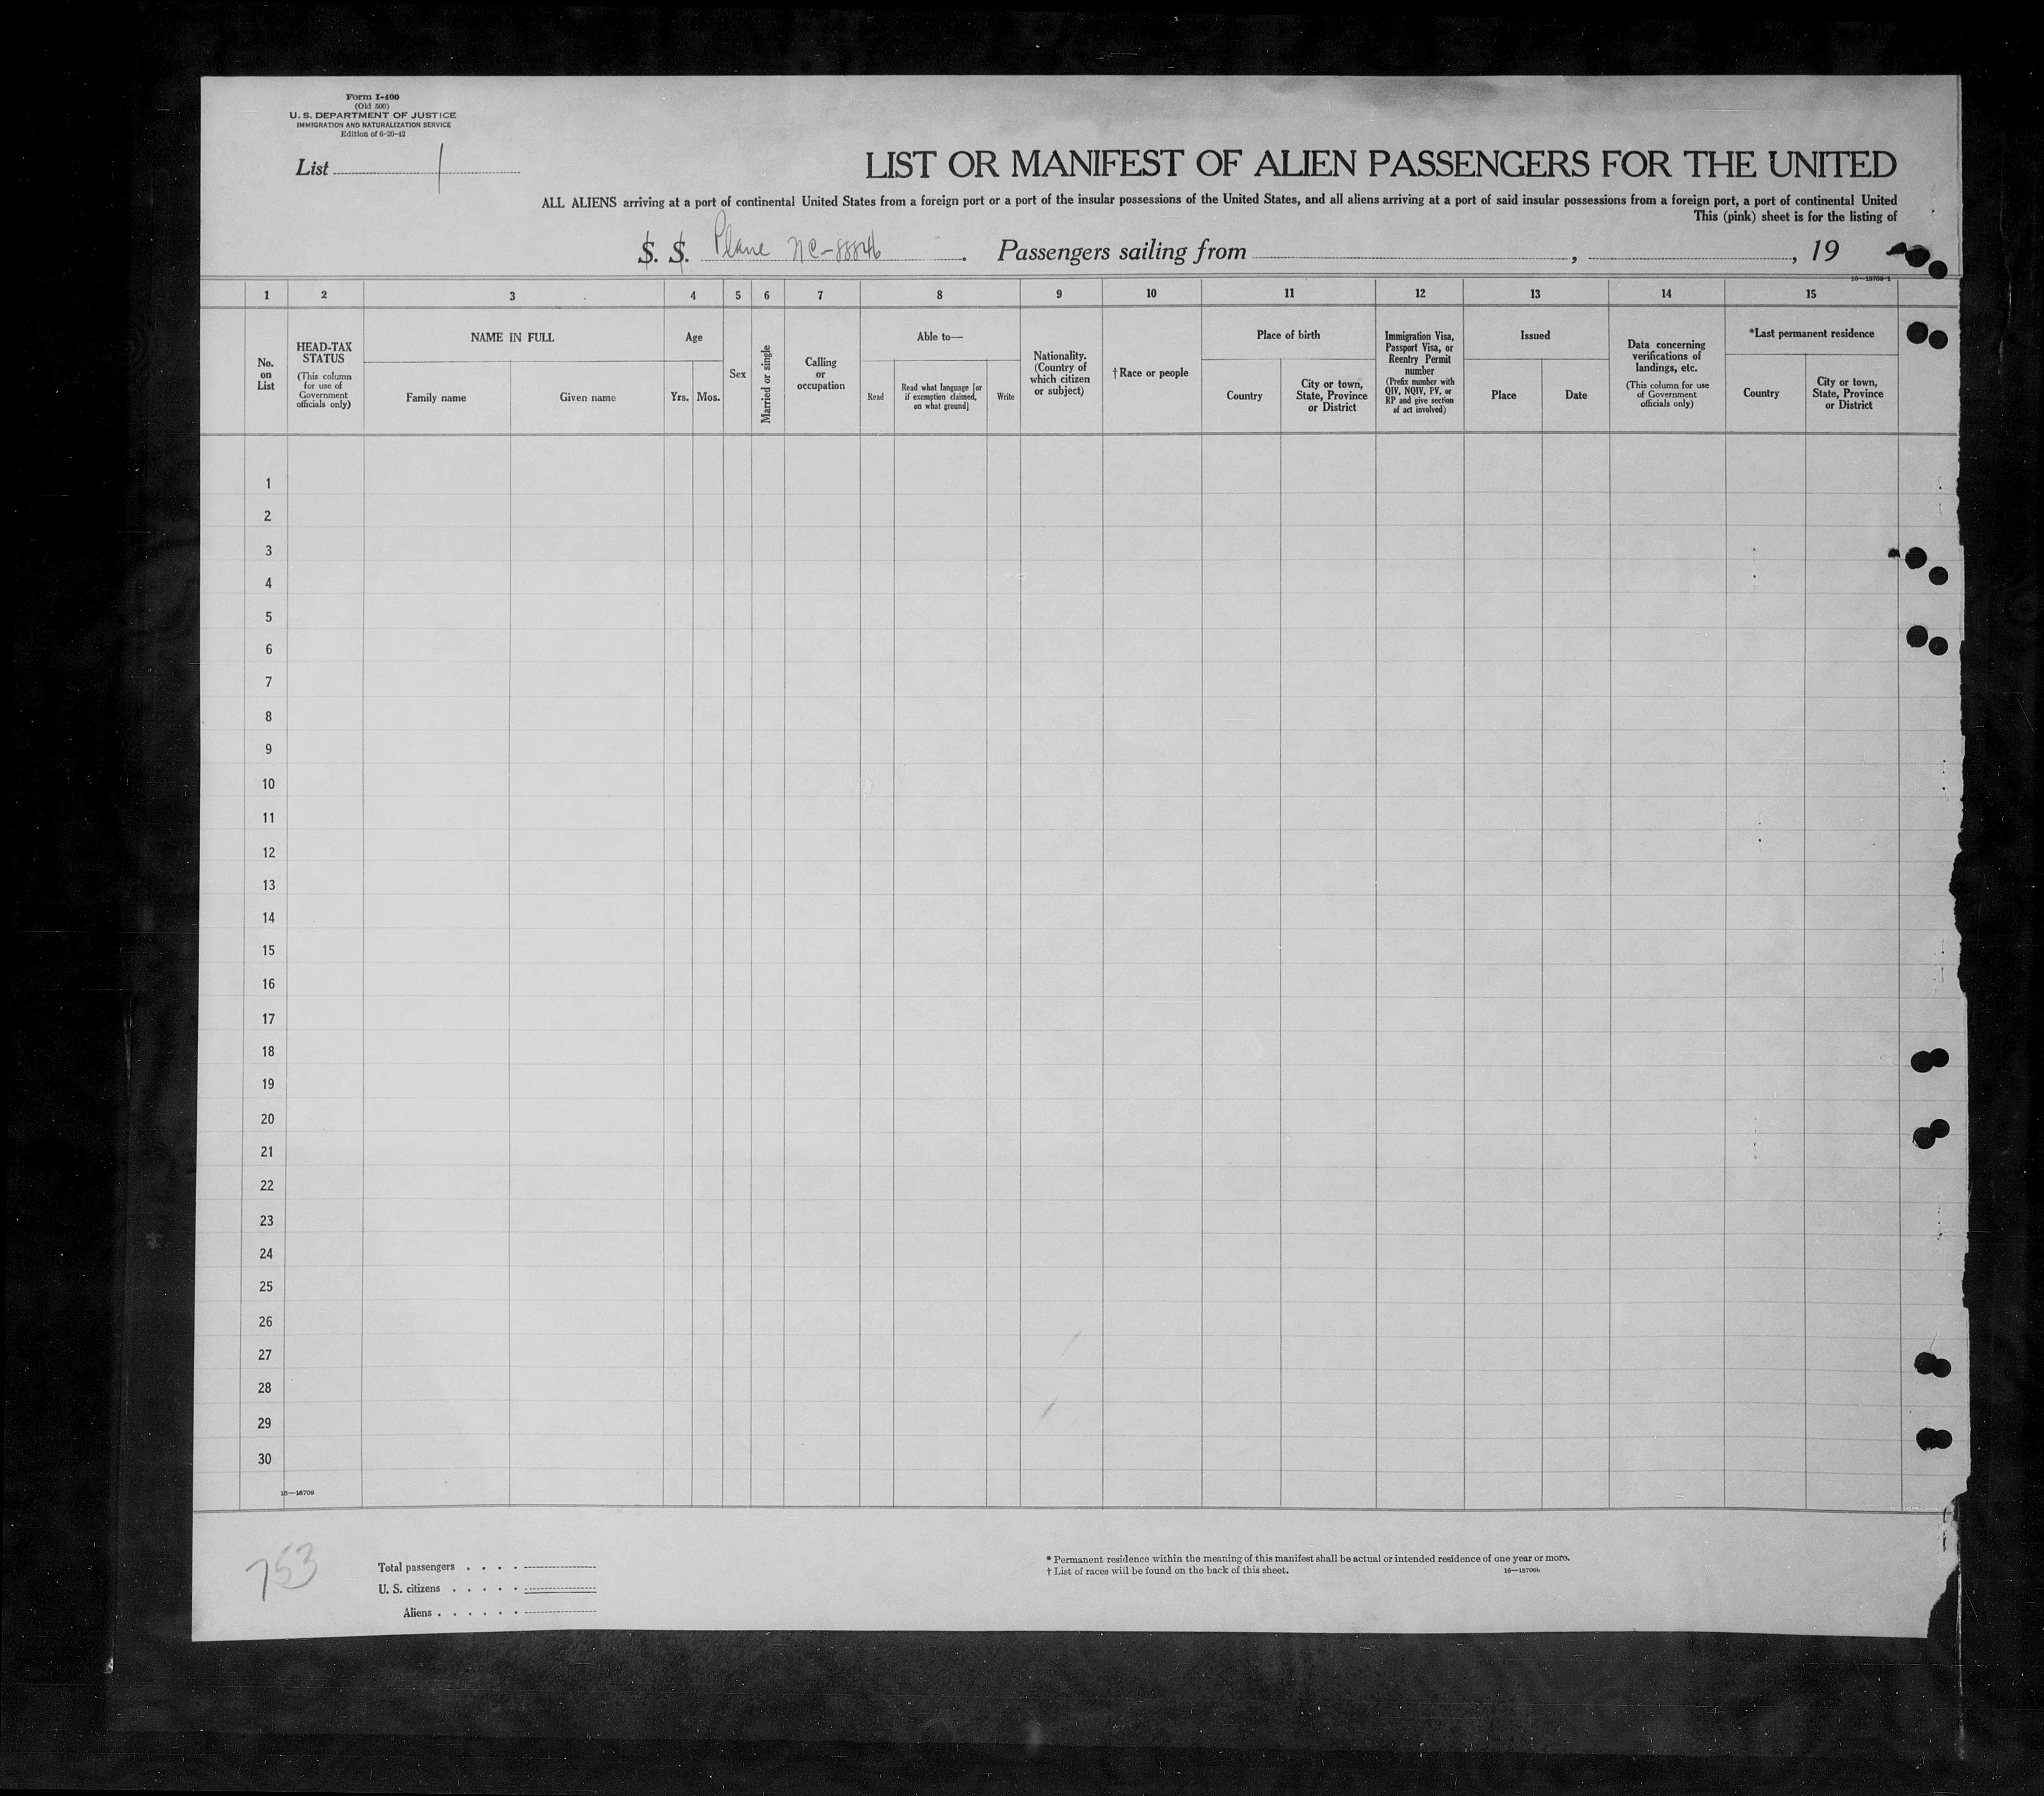 Form I-400
(Old 500)
U. S. DEPARTMENT OF JUSTICE
IMMIGRATION AND NATURALIZATION SERVICE
Edition of 6-20-42
List 1
LIST OR MANIFEST OF ALIEN PASSENGERS FOR THE UNITED
ALL ALIENS arriving at a port of continental United States from a foreign port or a port of the insular possessions of the United States, and all aliens arriving at a port of said insular possessions from a foreign port, a port of continental United
This (pink) sheet is for the listing of
S. S. Plane NC-88846. Passengers sailing from , , 19
16—18709-1
1 2 3 4 5 6 7 8 9 10 11 12 13 14 15
No. on List
HEAD-TAX STATUS
(This column for use of Government officials only)
NAME IN FULL
Family name
Given name
Age
Yrs. Mos.
Sex
Married or single
Calling or occupation
Able to—
Read
Read what language [or if exemption claimed, on what ground]
Write
Nationality. (Country of which citizen or subject)
†Race or people
Place of birth
Country
City or town, State, Province or District
Immigration Visa, Passport Visa, or Reentry Permit number
(Prefix number with QIV, NQIV, PV, or RP and give section of act involved)
Issued
Place
Date
Data concerning verifications of landings, etc.
(This column for use of Government officials only)
*Last permanent residence
Country
City or town, State, Province or District
1
2
3
4
5
6
7
8
9
10
11
12
13
14
15
16
17
18
19
20
21
22
23
24
25
26
27
28
29
30
16—18709
753
Total passengers . . . .
U. S. citizens . . . . .
Aliens . . . . . .
* Permanent residence within the meaning of this manifest shall be actual or intended residence of one year or more.
† List of races will be found on the back of this sheet.
16—18709b